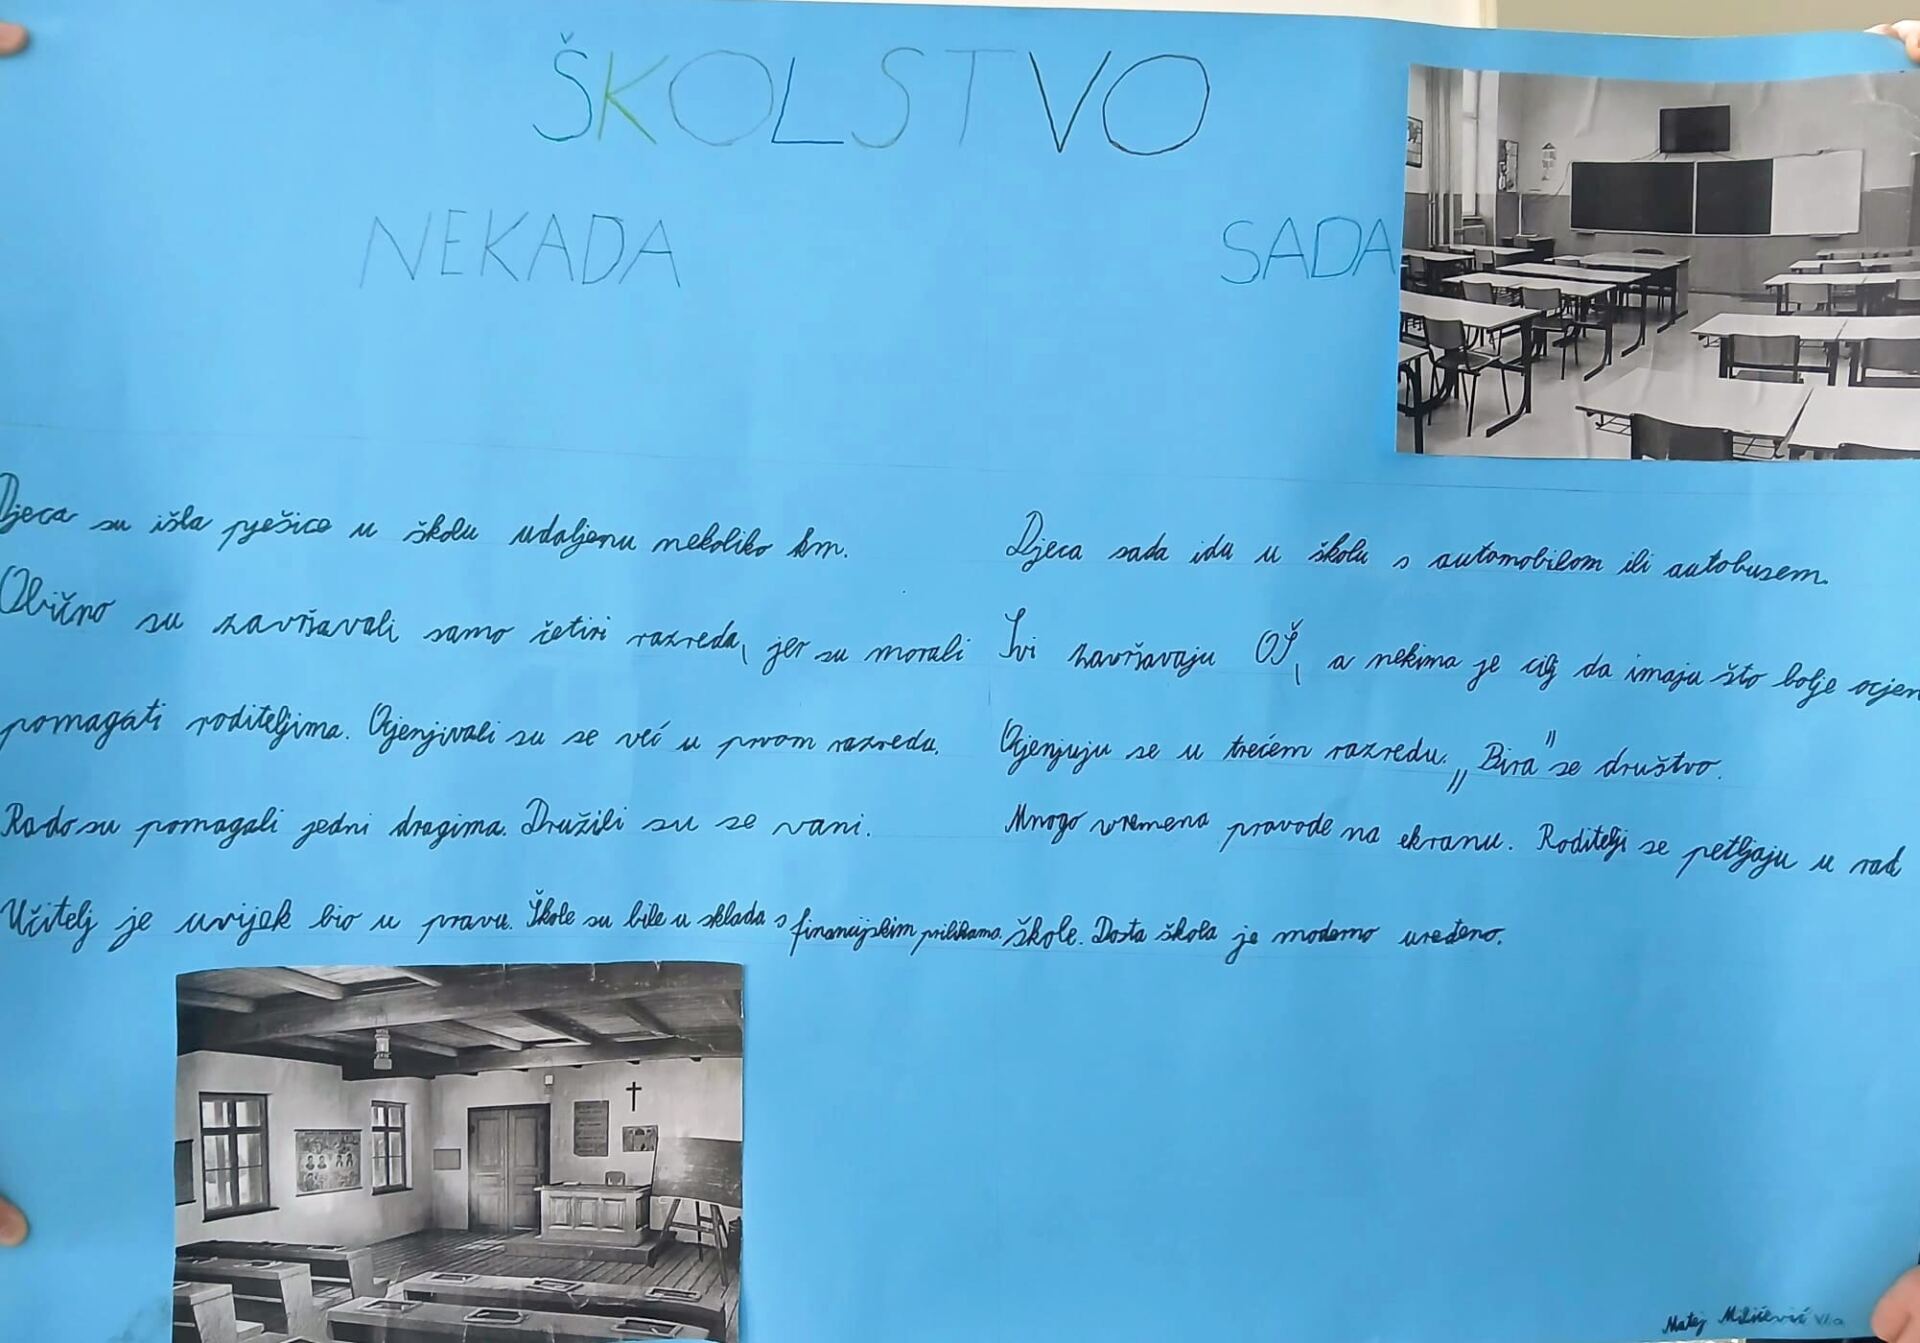 ŠKOLSTVO
NEKADA
Djeca su išla pješice u školu udaljenu nekoliko km.
Obično su završavali samo četiri razreda, jer su morali
pomagati roditeljima. Ocjenjivali su se već u prvom razredu.
Rado su pomagali jedni drugima. Družili su se vani.
Učitelj je uvijek bio u pravu. Škole su bile u skladu s financijskim prilikama.
SADA
Djeca sada idu u školu s automobilom ili autobusem.
Svi završavaju OŠ, a nekima je cilj da imaju što bolje ocjen
Ocjenjuju se u trećem razredu. „Bira” se društvo.
Mnogo vremena provode na ekranu. Roditelji se petljaju u rad
škole. Dosta škola je moderno uređeno.
Matej Miličević VI.a